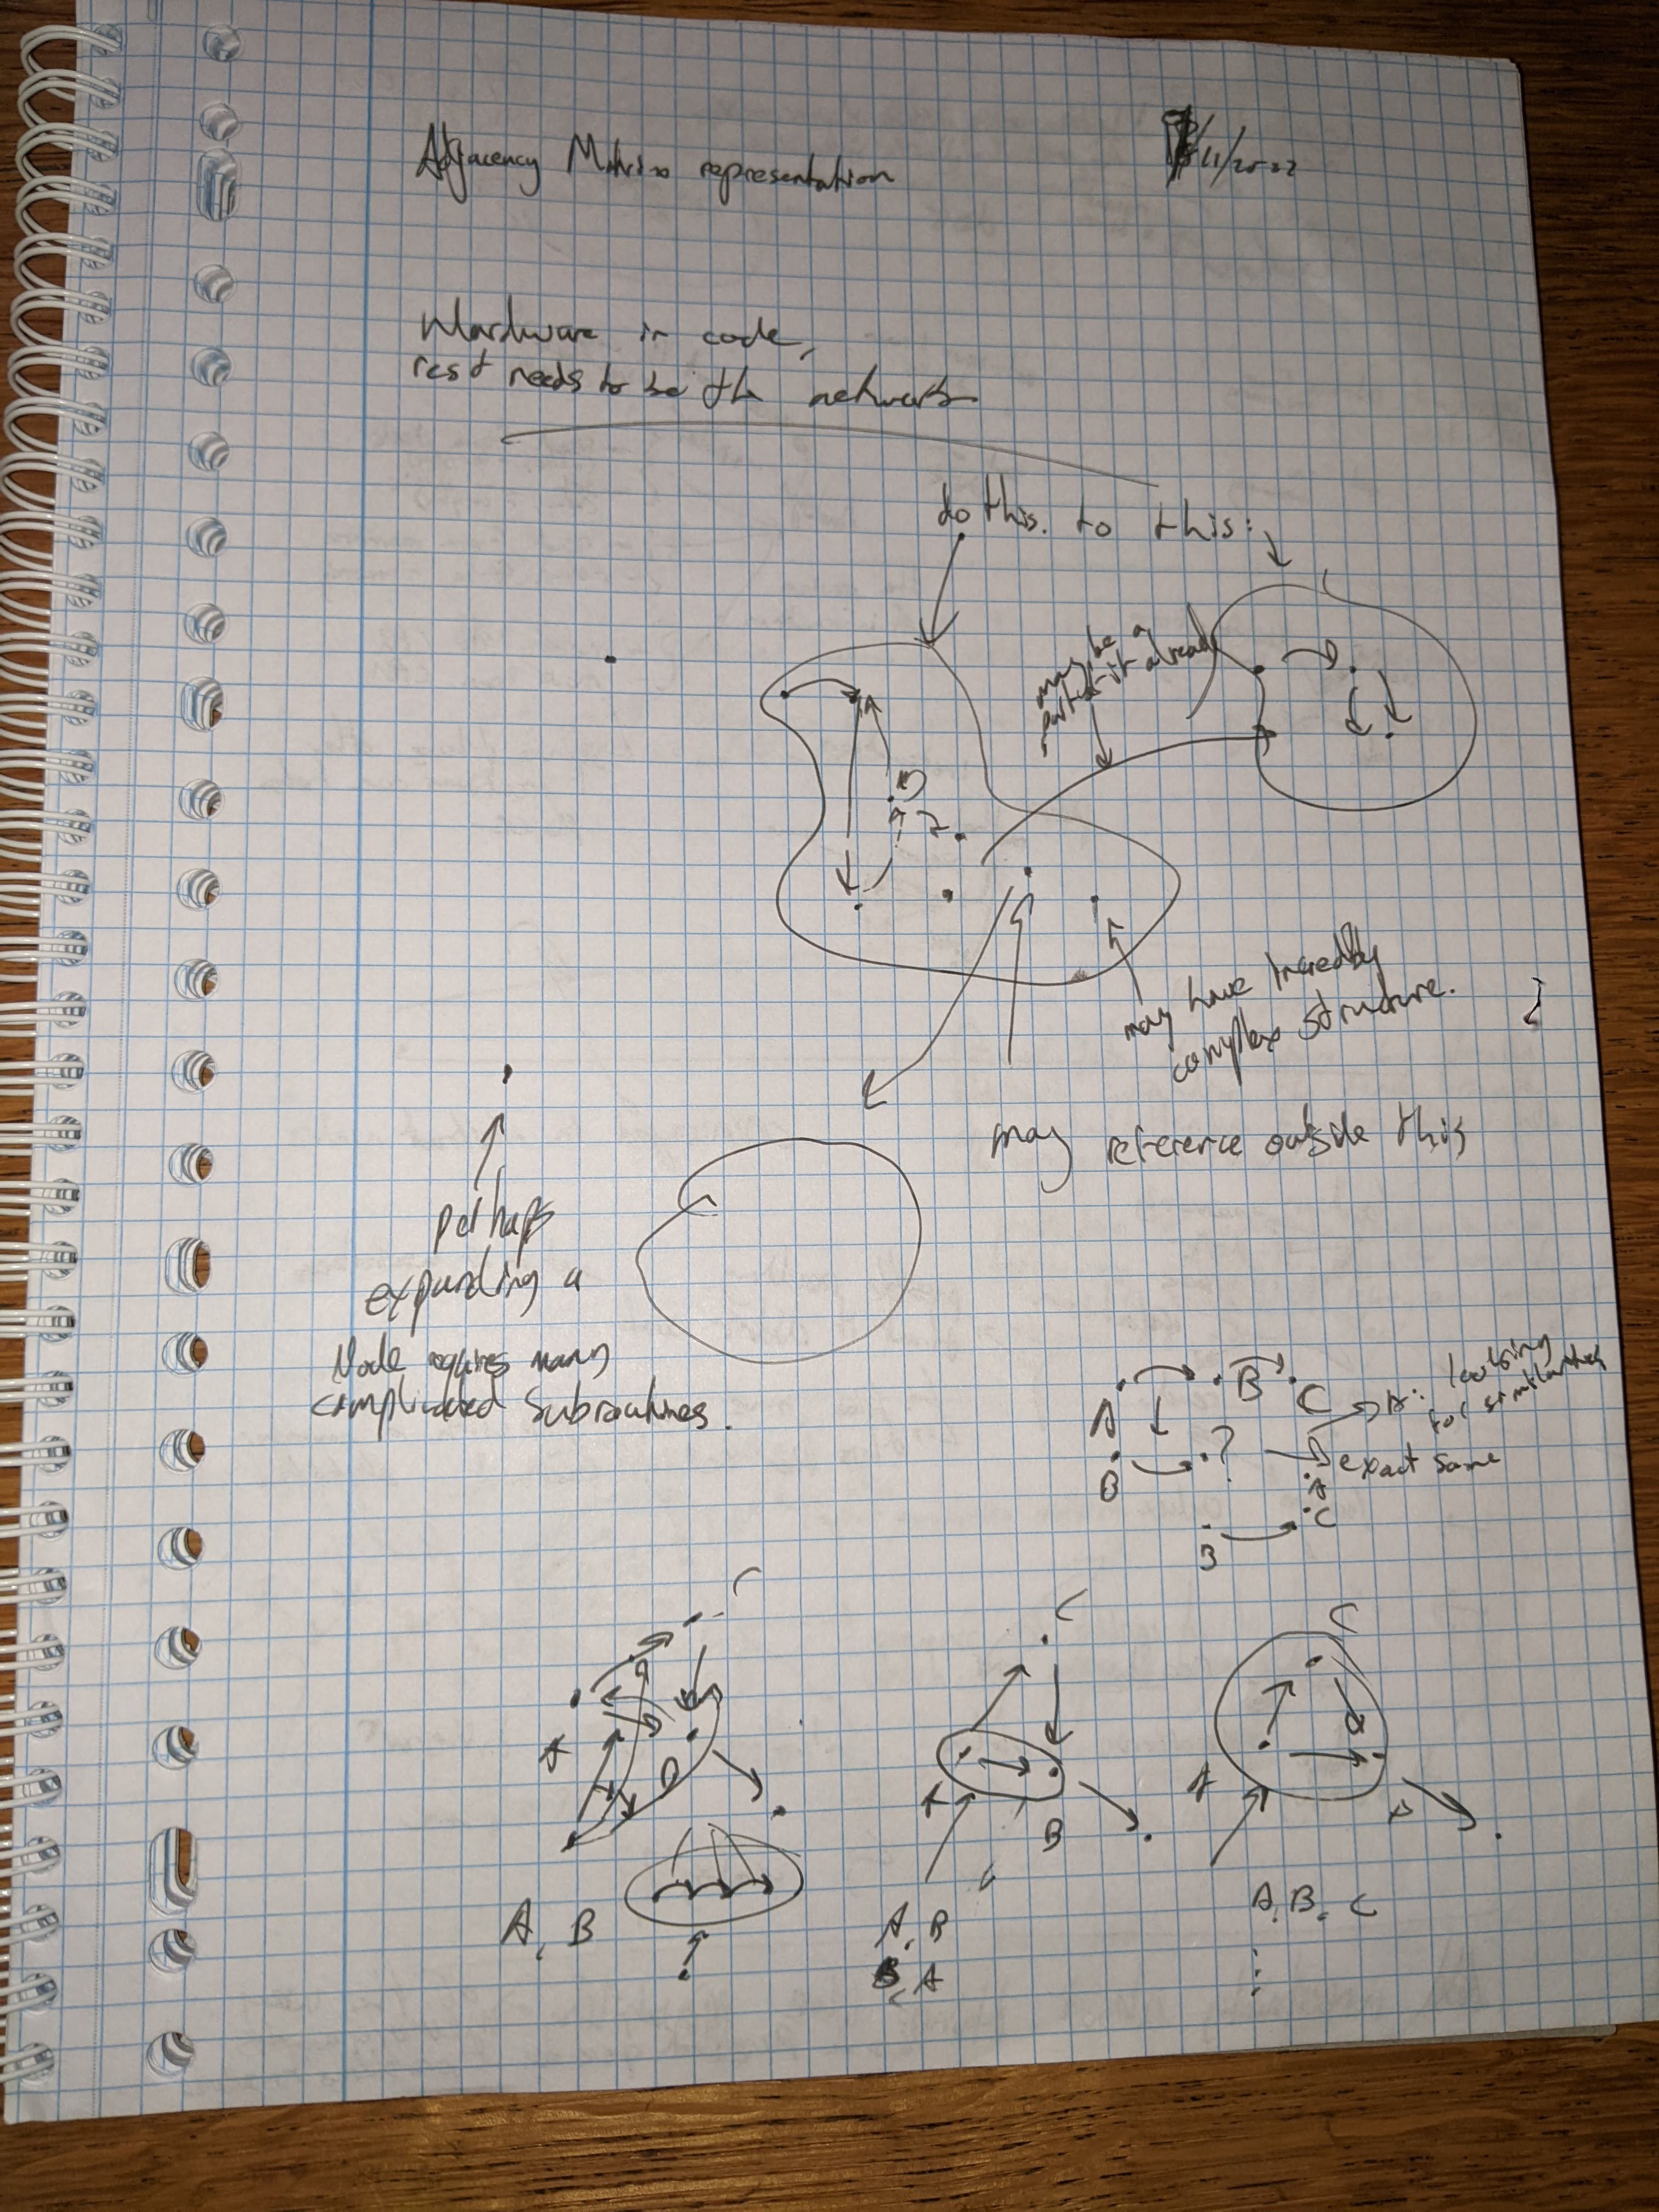 Adjacency Matrix representation
11/2022
Hardware in code,
rest needs to be the network
do this. to this:
may be a
part of it already
may have incredibly
complex structure.
may reference outside this
perhaps
expanding a
Node requires many
complicated subroutines.
A B C
B ?
A: looking
for similarities
exact same
A
C
B
C
A
A, B
C
A
B
A, B
B, A
C
A
A, B, C